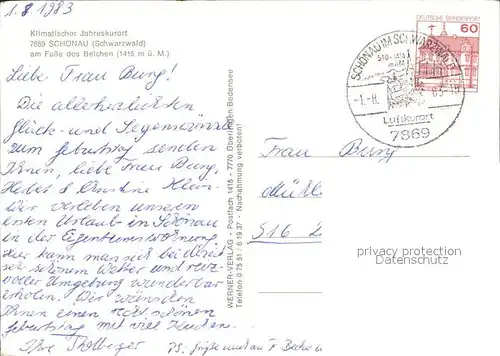 1.8.1983
Klimatischer Jahreskurort
7869 SCHÖNAU (Schwarzwald)
am Fuße des Belchen (1415 m ü. M.)
Liebe Frau Burg!
Die allerherzlichsten
Glück- und Segenswünsche
zum Geburtstag senden
Ihnen, liebe Frau Burg,
Christine Klein.
Wir verleben unseren
ersten Urlaub in Schönau
in der Eigentumswohnung
Hier kann man sich bei
sehr schönem Wetter und reiz-
voller Umgebung wunderbar
erholen. Wir wünschen
Ihnen einen recht schönen
Geburtstag mit viel Kuchen.
Ihre
PS:
WERNER-VERLAG - Postfach 1415 - 7770 Überlingen-Bodensee
Telefon 0 75 51 / 6 19 37 - Nachahmung verboten!
DEUTSCHE BUNDESPOST
60
SCHÖNAU IM SCHWARZWALD
-1.-8. 83-18
Luftkurort
7869
Frau Burg
516
privacy protection
Datenschutz